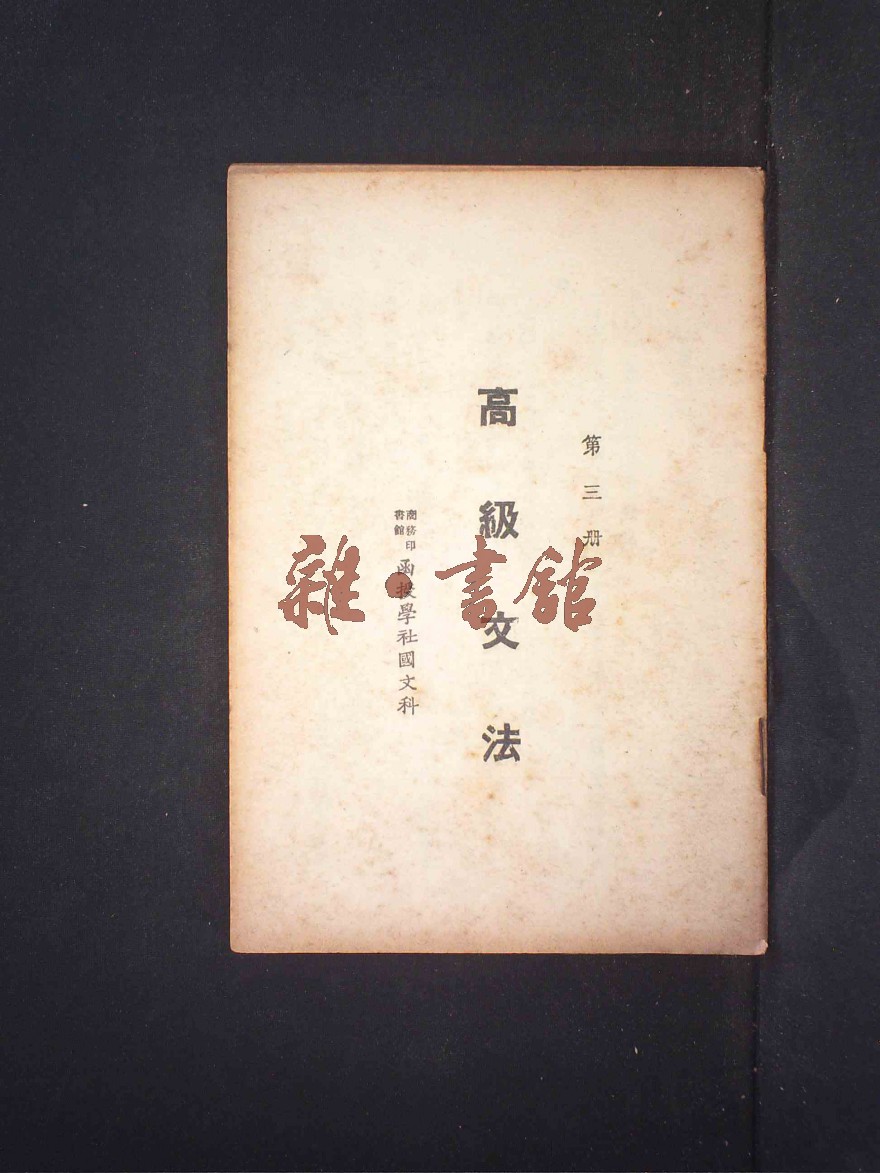 第三册
高級文法
商務印書館
函授學社國文科
雜·書館